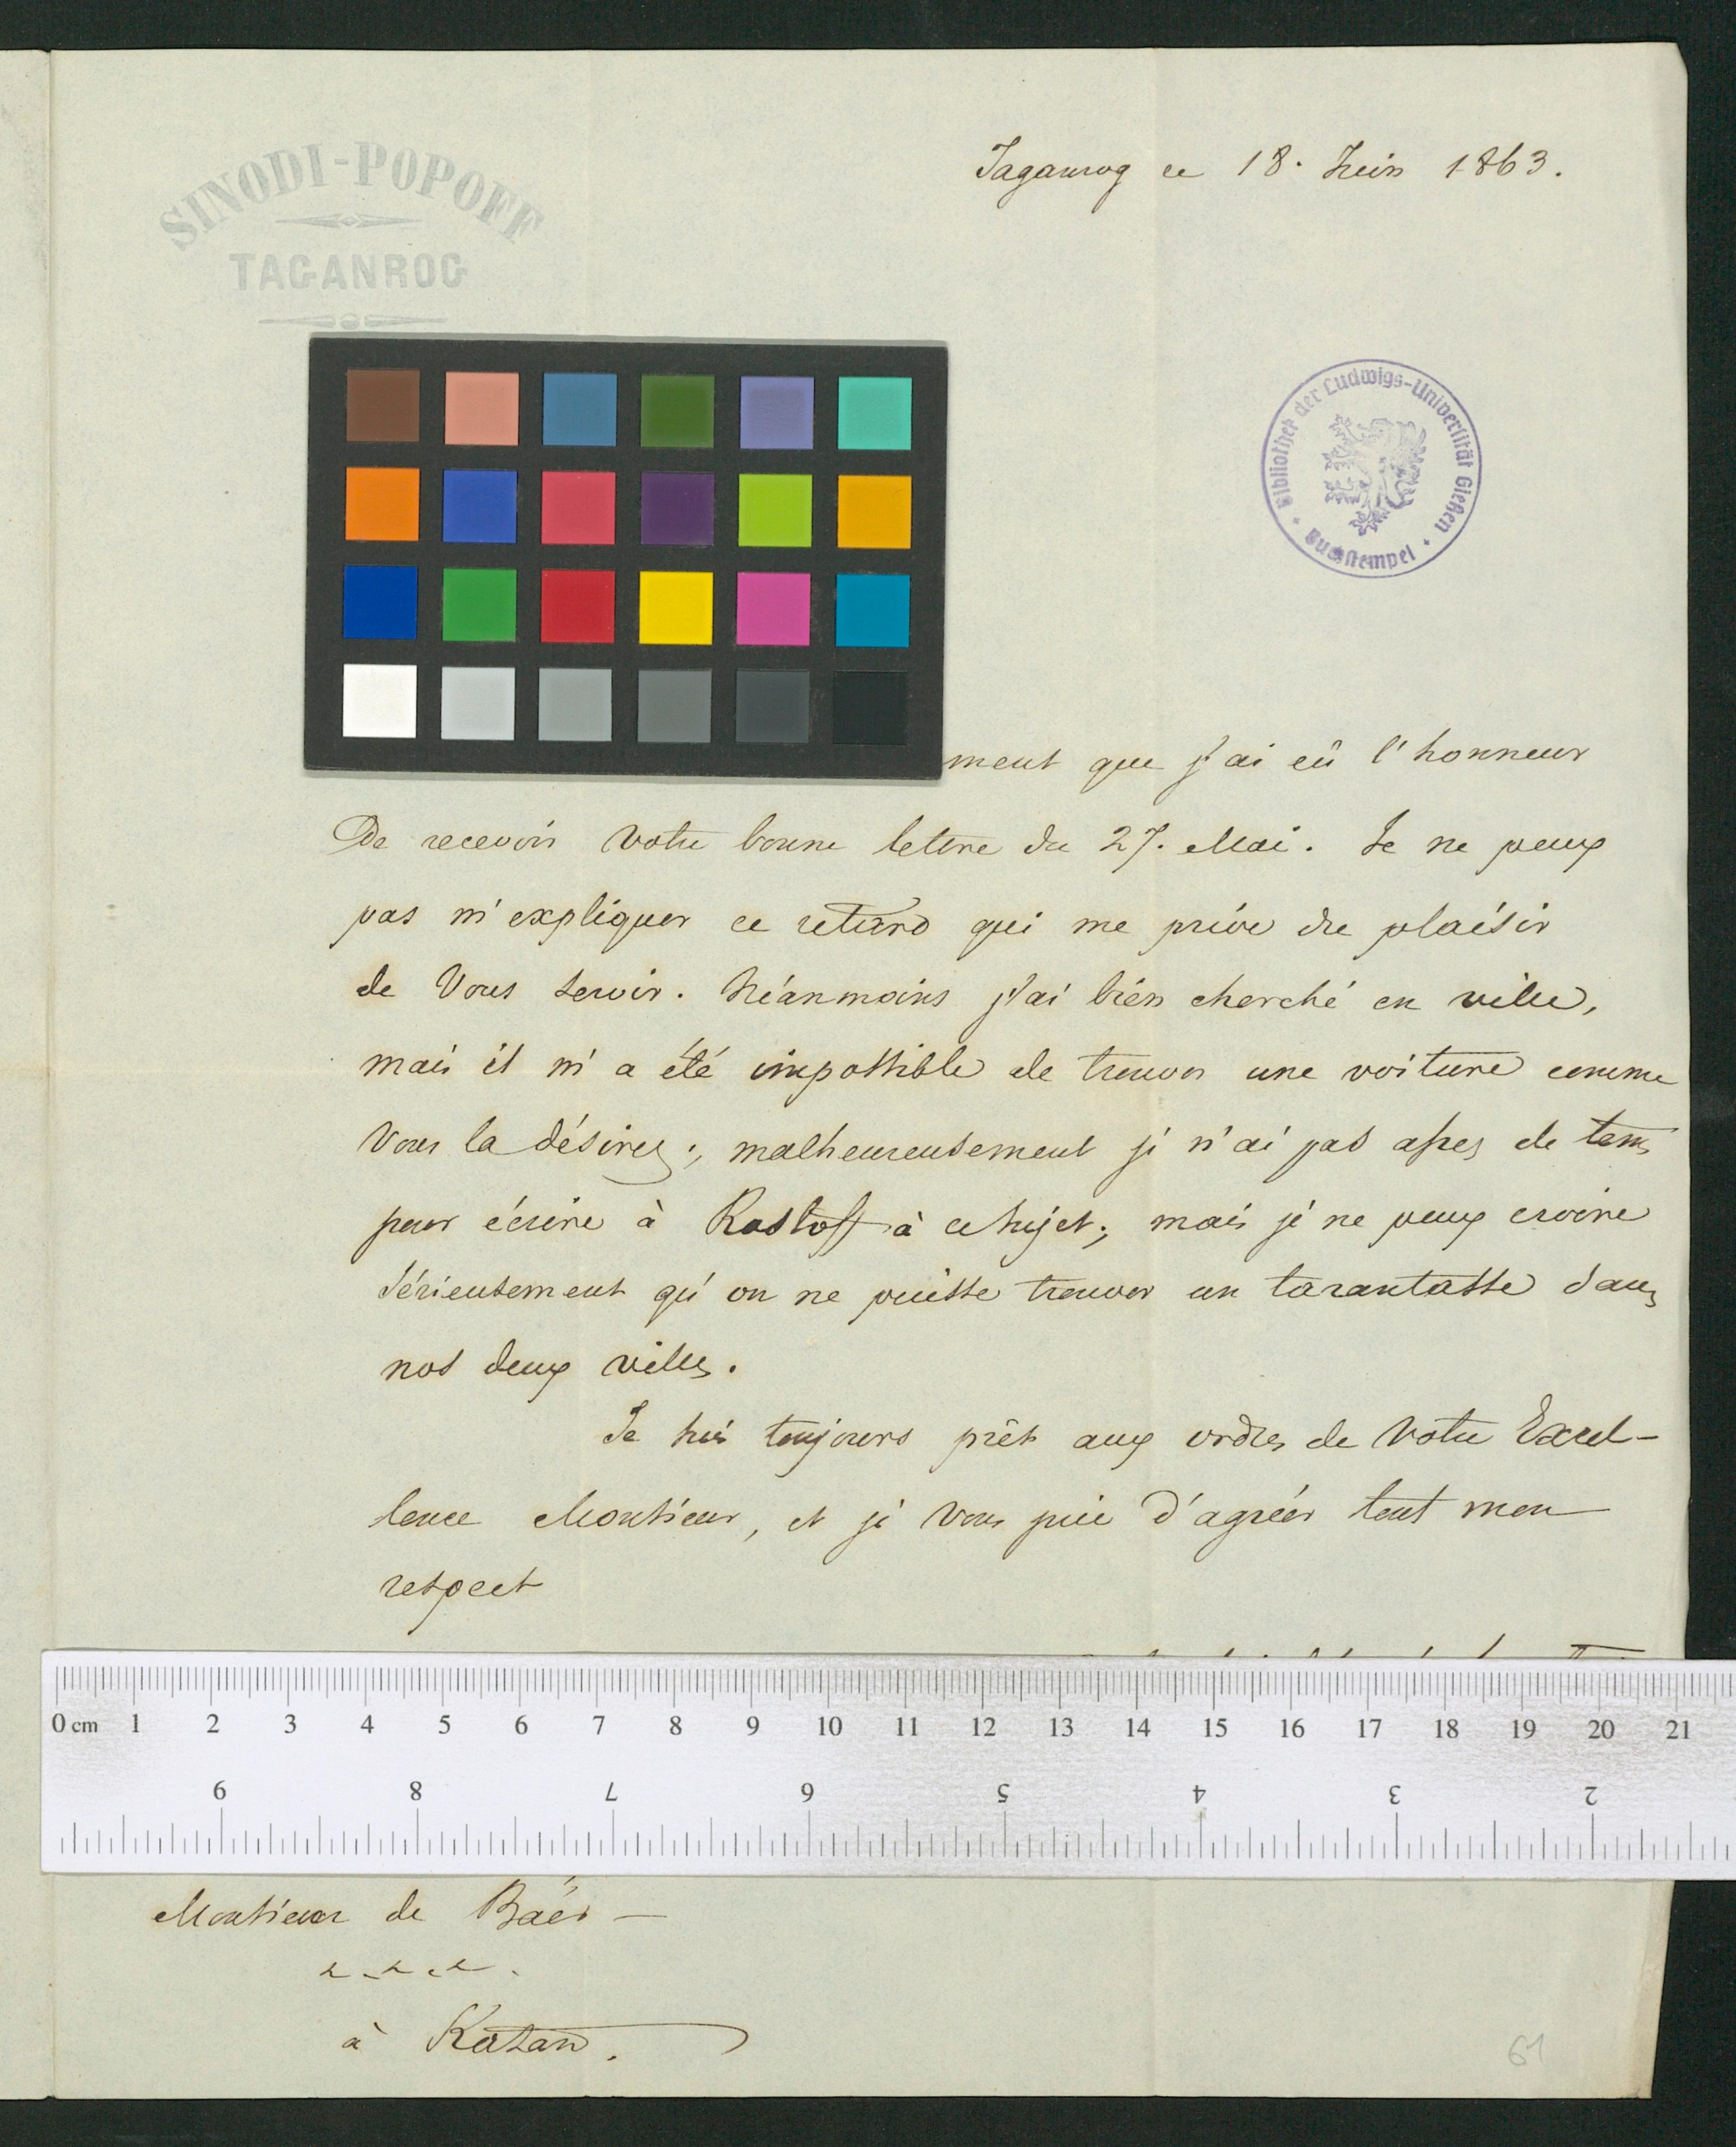 SINODI-POPOFF
TAGANROG
Taganrog ce 18. Juin 1863.
Bibliothek der Ludwigs-Universität Gießen
Buchstempel
ment que j'ai eû l'honneur
De recevoir votre bonne lettre du 27. Mai. Je ne peux
pas m'expliquer ce retard qui me prive du plaisir
de Vous servir. Néanmoins j'ai bien cherché en ville,
mais il m'a été impossible de trouver une voiture comme
Vous la désirez; malheureusement je n'ai pas assez de tems
pour écrire à Rostoff à ce sujet; mais je ne peux croire
sérieusement qu'on ne puisse trouver un tarantasse dans
nos deux villes.
Je suis toujours prêt aux ordres de Votre Excel-
lence Monsieur, et je Vous prie d'agréer tout mon
respect
0 cm 1 2 3 4 5 6 7 8 9 10 11 12 13 14 15 16 17 18 19 20 21
9 8 7 6 5 4 3 2
Monsieur de Baër
à Kasan.
61